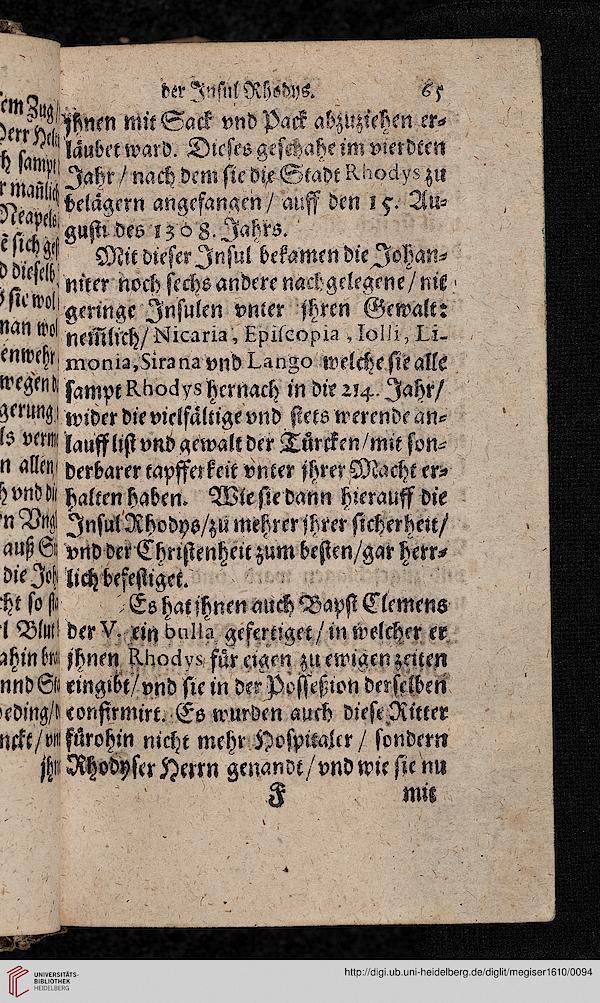 der Insul Rhodys. 65
ihnen mit Sack vnd Pack abzuziehen er⸗
läubet ward. Dieses geschahe im vierdten
Jahr / nach dem sie die Stadt Rhodys zu
belägern angefangen / auff den 15. Au⸗
gusti des 1308. Jahrs.
Mit dieser Insul bekamen die Johan⸗
niter noch sechs andere nachgelegene / nit
geringe Insulen vnter ihren Gewalt:
nem̃lich / Nicaria, Episcopia, Iolli, Li-
monia, Sirana vnd Lango welche sie alle
sampt Rhodys hernach in die 214. Jahr /
wider die vielfältige vnd stets werende an⸗
lauff list vnd gewalt der Türcken / mit son⸗
derbarer tapfferkeit vnter ihrer Macht er⸗
halten haben. Wie sie dann hierauff die
Insul Rhodys / zu mehrer ihrer sicherheit /
vnd der Christenheit zum besten / gar herr⸗
lich befestiget.
Es hat ihnen auch Bapst Clemens
der V. ein bulla gefertiget / in welcher er
ihnen Rhodys für eigen zu ewigen zeiten
eingibt / vnd sie in der Posseßion derselben
confirmirt. Es wurden auch diese Ritter
fürohin nicht mehr Hospitaler / sondern
Rhodyser Herrn genandt / vnd wie sie nu
F mit
UNIVERSITÄTS-
BIBLIOTHEK
HEIDELBERG
http://digi.ub.uni-heidelberg.de/diglit/megiser1610/0094